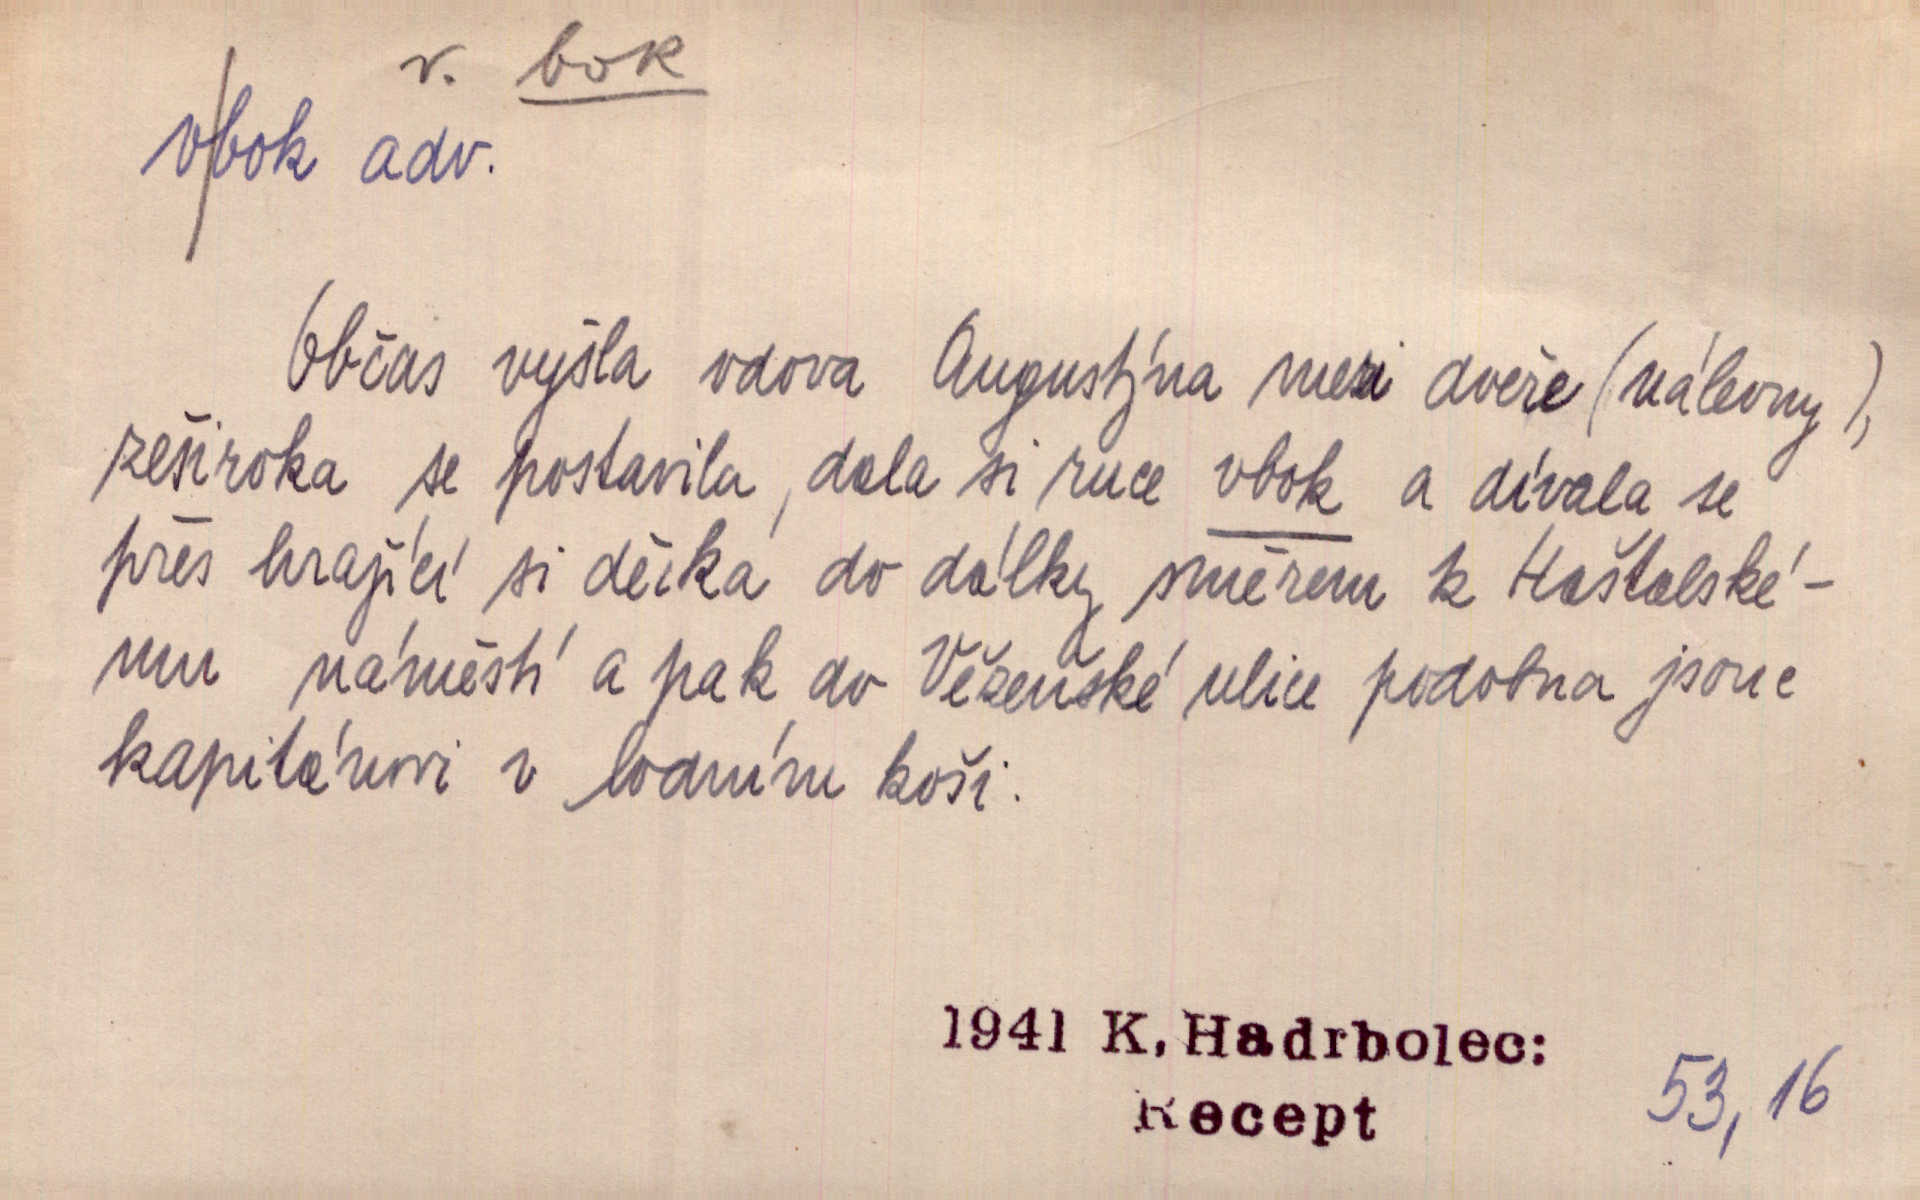 v. bok
v|bok adv.
Občas vyšla vdova Augustýna mezi dveře (nálevny),
zeširoka se postavila, dala si ruce vbok a dívala se
přes hrající si děcka do dálky směrem k Haštalské-
mu náměstí a pak do Vězeňské ulice podobna jsouc
kapitánovi v lodním koši.
1941 K. Hadrbolec:
Recept
53, 16